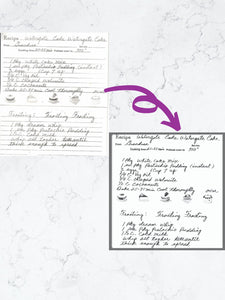 Recipe Watergate Cake Watergate Cake
Grandma
350°
1 Pkg white Cake mix
1 sm Pkg Pistachio Pudding (instant)
3 eggs 1 Cup 7 up
Oil
½ C. Chopped Walnuts
½ C Coconuts
Bake Cool Thoroughly
Frosting: Frosting Frosting
1 Pkg dream whip
1 sm Pkg Pistachio Pudding
1½ C. Cold milk
whip all together
thick enough to spread
Recipe Watergate Cake Watergate Cake
Grandma
350°
1 Pkg white Cake mix
1 sm Pkg Pistachio Pudding (instant)
3 eggs 1 Cup 7 up
Oil
½ C. Chopped Walnuts
½ C Coconuts
Bake Cool Thoroughly
Frosting: Frosting Frosting
1 Pkg dream whip
1 sm Pkg Pistachio Pudding
1½ C. Cold milk
whip all together
thick enough to spread